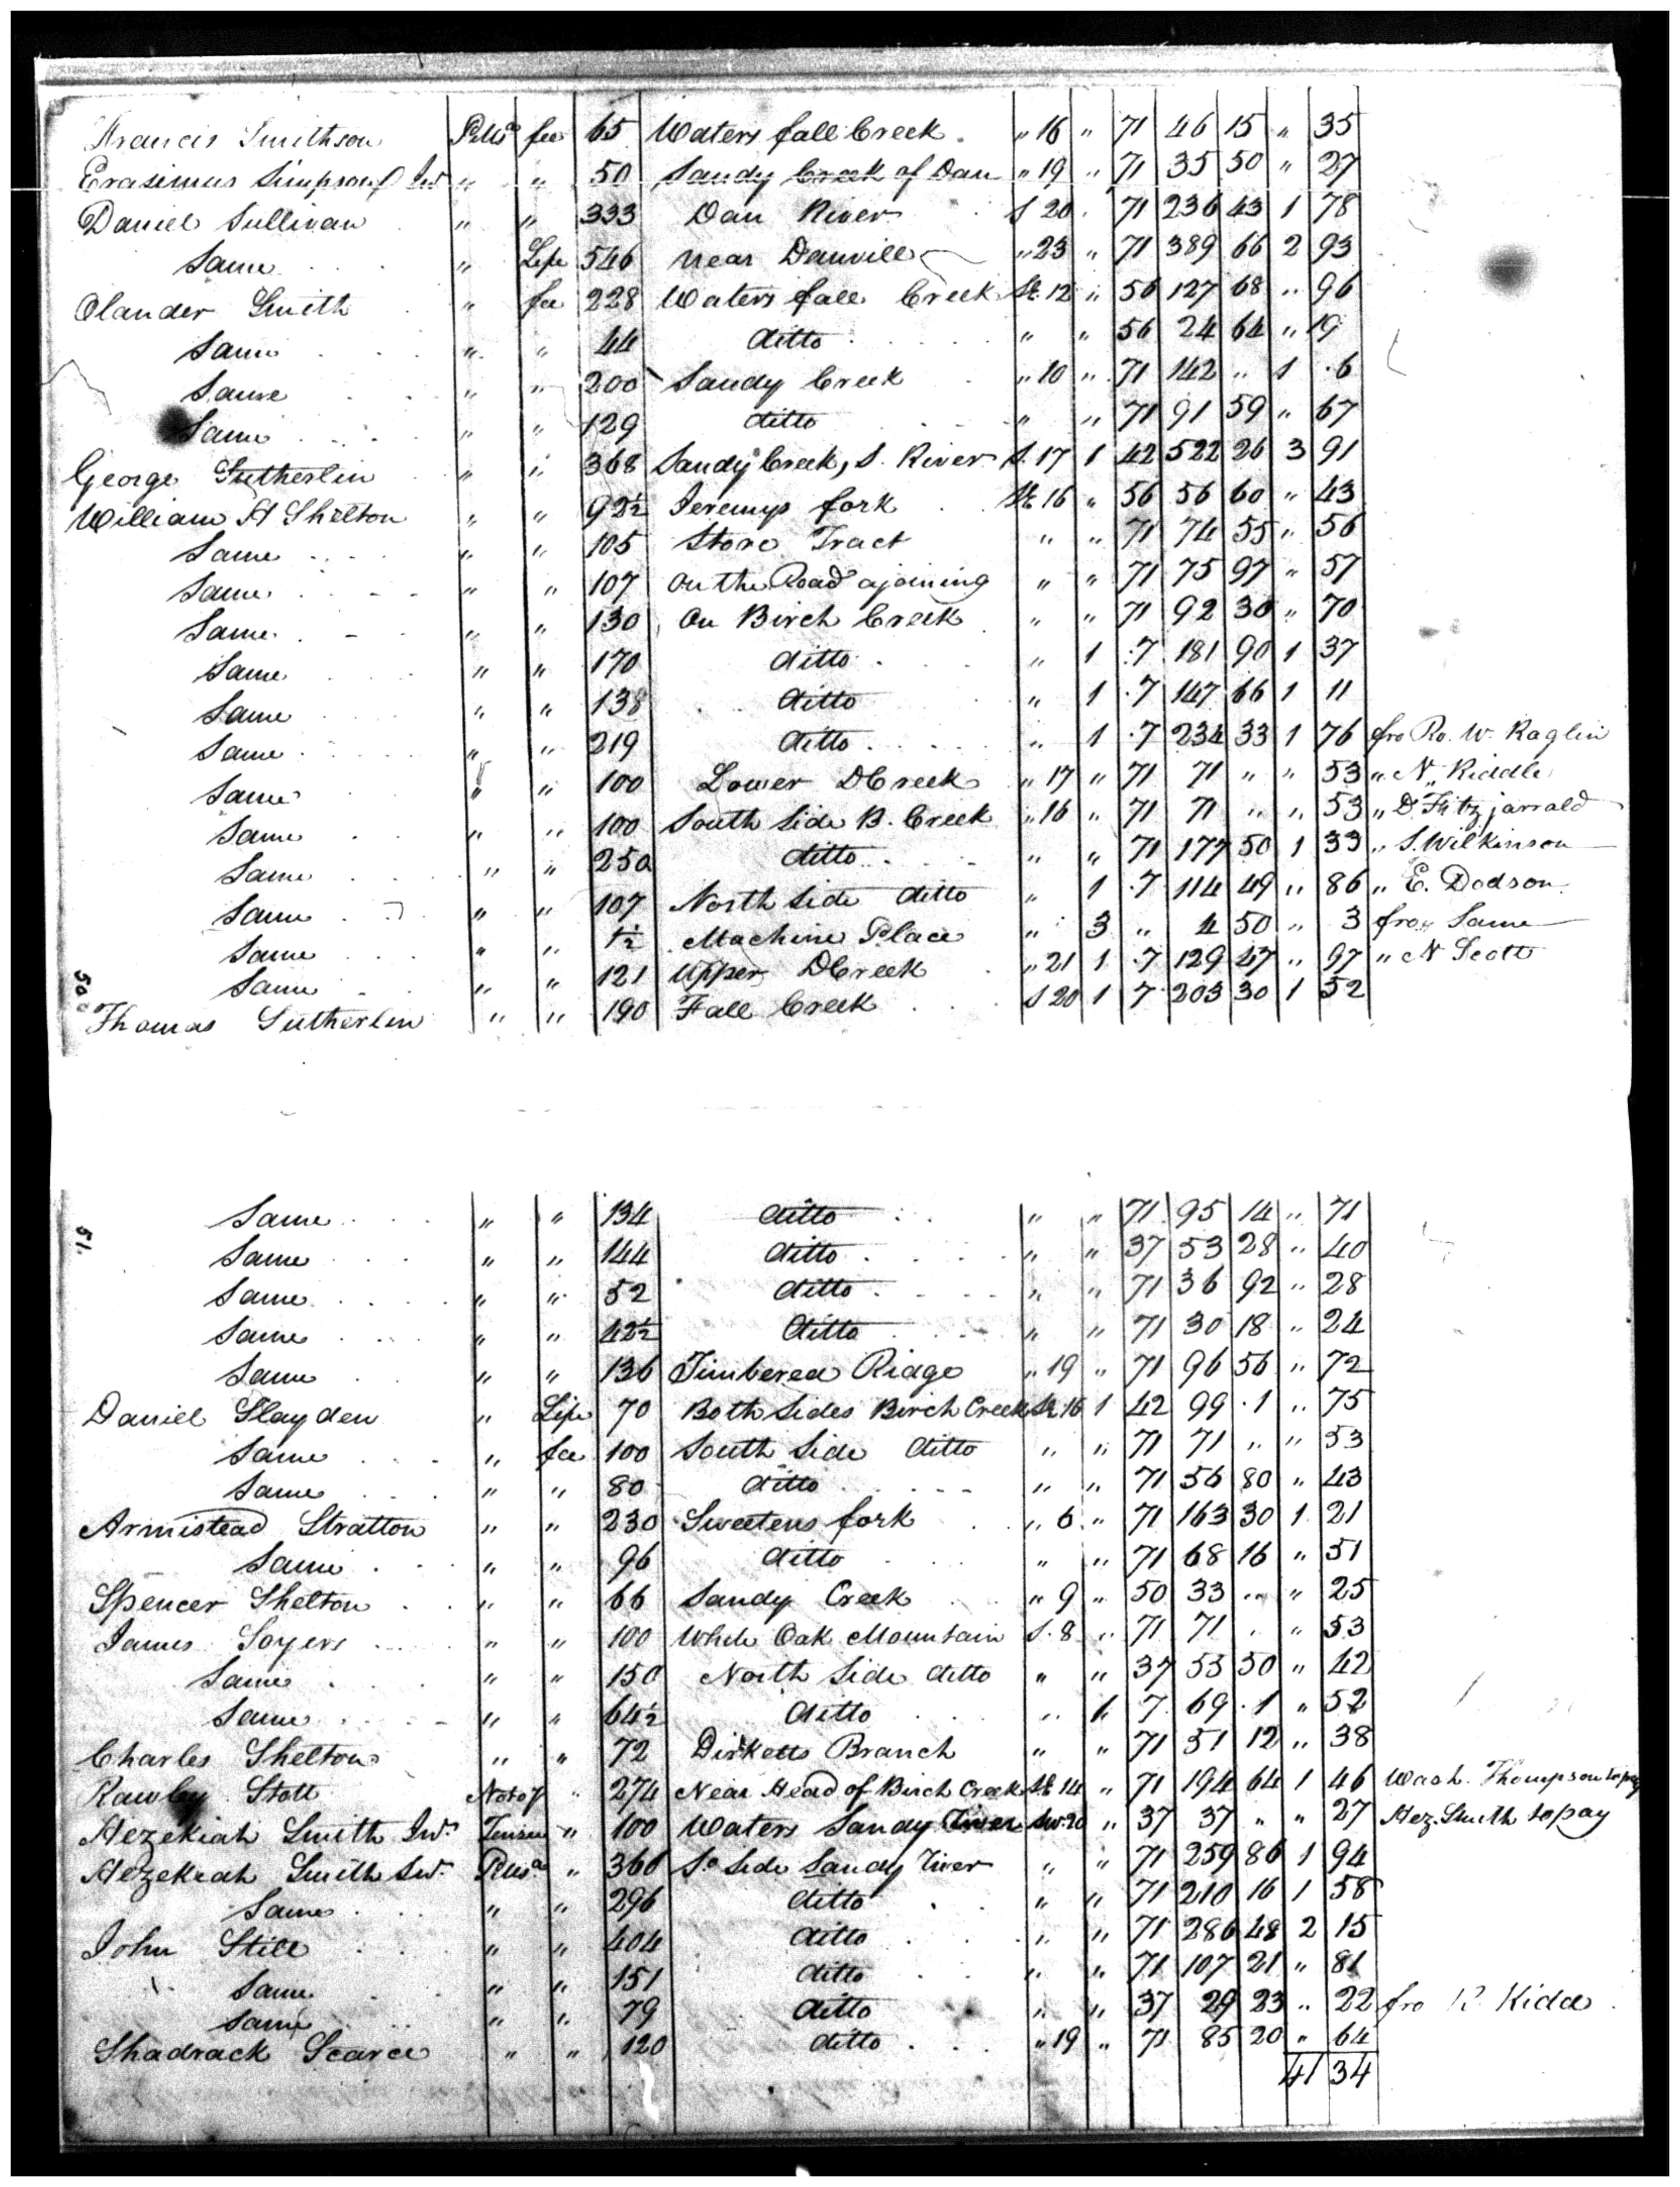 Francis Smithson Pitts^a fee 65 Waters fall Creek " 16 " 71 46 15 " 35
Erasimus Simpson Sr " " 50 Sandy Creek of Dan " 19 " 71 35 50 " 27
Daniel Sullivan " " 333 Dan River S 20 " 71 236 43 1 78
Same " Life 546 near Danville " 23 " 71 389 66 2 93
Olander Smith " fee 228 Waters fall Creek SE 12 " 56 127 68 " 96
Same " " 44 ditto " " 56 24 64 " 19
Same " " 200 Sandy Creek " 10 " 71 142 " 1 .6
Same " " 129 ditto " " 71 91 59 " 67
George Sutherlin " " 368 Sandy Creek, S. River S. 17 1 42 522 26 3 91
William H Shelton " " 92½ Jeremys fork SE 16 " 56 56 60 " 43
Same " " 105 Store Tract " " 71 74 55 " 56
Same " " 107 On the Road ajoining " " 71 75 97 " 57
Same " " 130 On Birch Creek " " 71 92 30 " 70
Same " " 170 ditto " 1 .7 181 90 1 37
Same " " 138 ditto " 1 .7 147 66 1 11
Same " " 219 ditto " 1 .7 234 33 1 76 fro Ro. W. Raglin
Same " " 100 Lower DCreek " 17 " 71 71 " " 53 " N. Riddle
Same " " 100 South Side B. Creek " 16 " 71 71 " " 53 " D. Fitzjarrald
Same " " 250 ditto " " 71 177 50 1 33 " S. Wilkinson
Same " " 107 North Side ditto " 1 .7 114 49 " 86 " E. Dodson
Same " " 1½ Machine Place " 3 " 4 50 " 3 fro Same
Same " " 121 Upper DCreek " 21 1 .7 129 47 " 97 " N Scott
50
Thomas Sutherlin " " 190 Fall Creek S 20 1 7 203 30 1 52
51.
Same " " 134 ditto " " 71 95 14 " 71
Same " " 144 ditto " " 37 53 28 " 40
Same " " 52 ditto " " 71 36 92 " 28
Same " " 42½ ditto " " 71 30 18 " 24
Same " " 136 Timbered Ridge " 19 " 71 96 56 " 72
Daniel Slayden " Life 70 Both Sides Birch Creek SE 16 1 42 99 .1 " 75
Same " fee 100 South Side ditto " " 71 71 " " 53
Same " " 80 ditto " " 71 56 80 " 43
Armistead Stratton " " 230 Sweetens fork " 6 " 71 163 30 1 21
Same " " 96 ditto " " 71 68 16 " 51
Spencer Shelton " " 66 Sandy Creek " 9 " 50 33 " " 25
James Soyers " " 100 White Oak Mountain S. 8 " 71 71 " " 53
Same " " 150 North Side ditto " " 37 53 50 " 42
Same " " 64½ ditto " 1 7 69 .1 " 52
Charles Shelton " " 72 Birketts Branch " " 71 51 12 " 38
Rawley Stott Not of " 274 Near Head of Birch Creek SE 14 " 71 194 64 1 46 Wash. Thompson to pay
Hezekiah Smith Jnr " 100 Waters Sandy River SW. 20 " 37 37 " " 27 Hez. Smith to pay
Hezekiah Smith Snr Pitts^a " 366 So Side Sandy River " " 71 259 86 1 94
Same " " 296 ditto " " 71 210 16 1 58
John Still " " 404 ditto " " 71 286 48 2 15
Same " " 151 ditto " " 71 107 21 " 81
Same " " 79 ditto " " 37 29 23 " 22 fro R. Kidd
Shadrack Scarce " " 120 ditto " 19 " 71 85 20 " 64
41 34